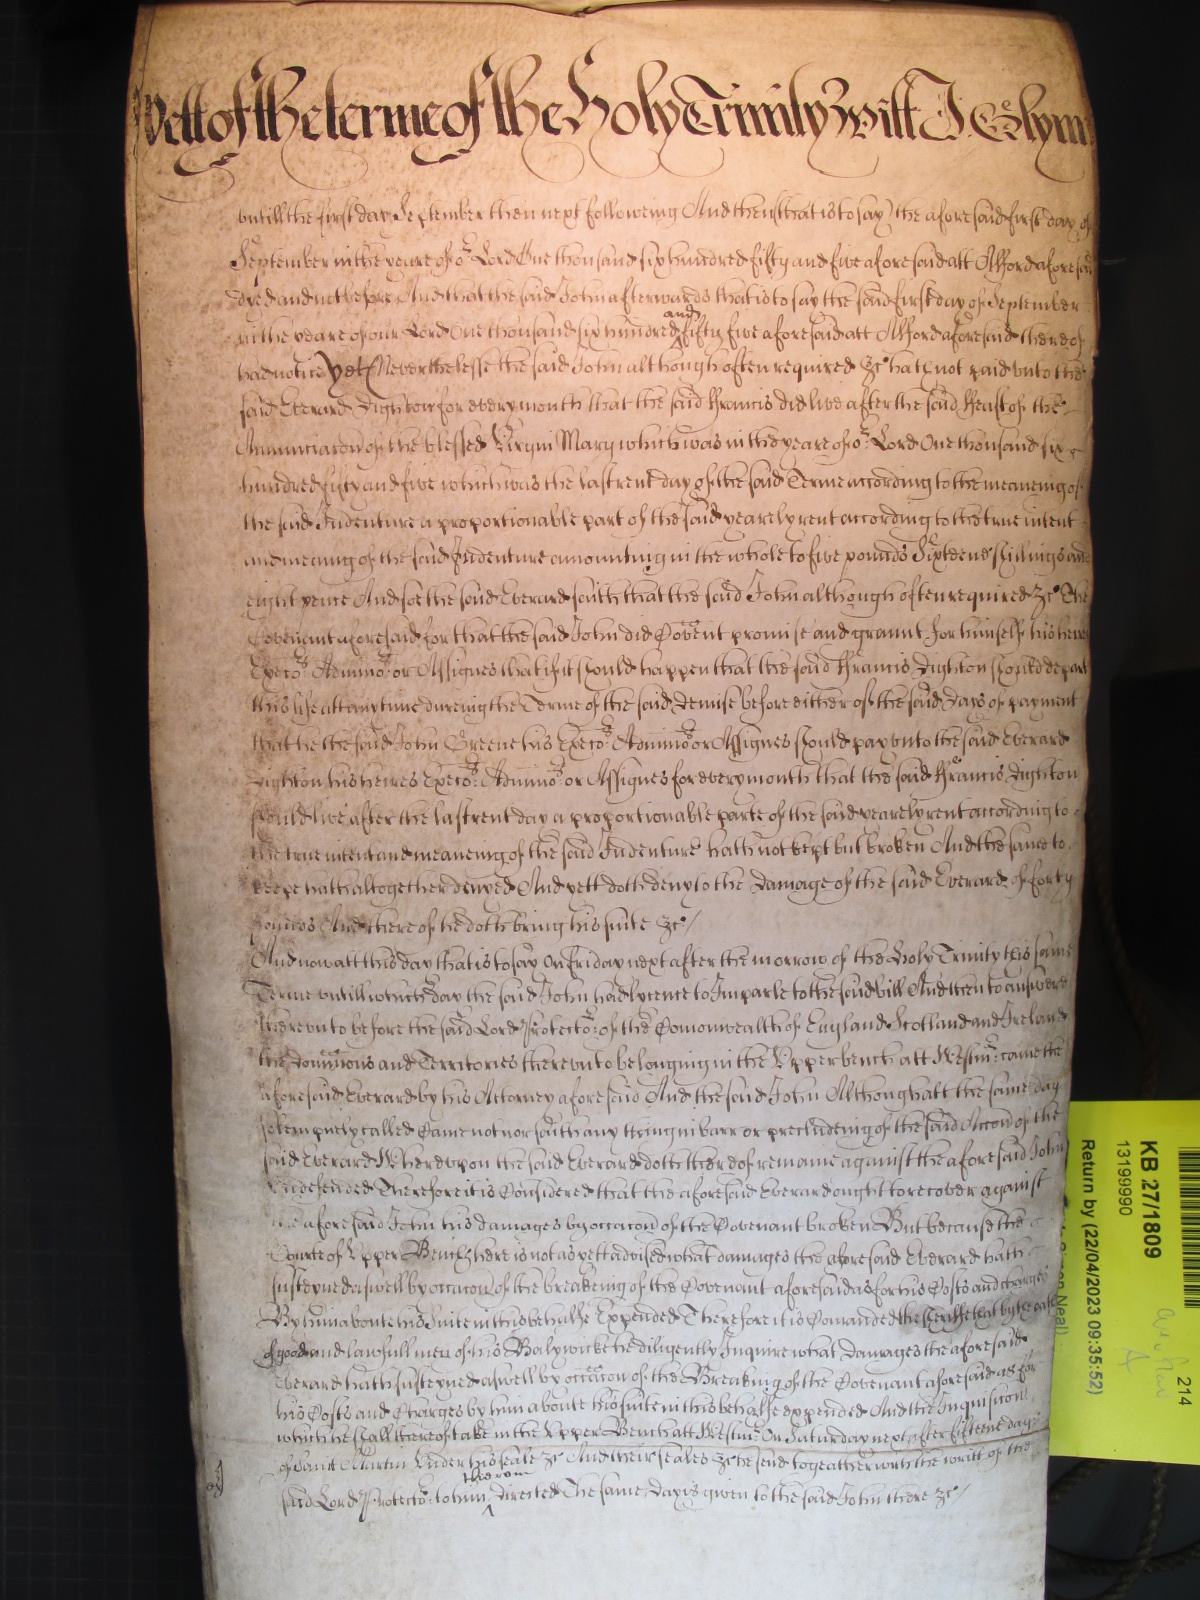 Yett of the terme of the Holy Trinity Witt J Glynn
untill the first day September then next followeing And then (that is to say) the aforesaid first day of
September in the yeare of or Lord One thousand six hundred fifty and five aforesaid att Alford aforesaid
dyed and not before And that the said John afterwards that is to say the said first day of September
in the yeare of our Lord One thousand six hundred and fifty five aforesaid att Alford aforesaid thereof
had notice Yett Neverthelesse the said John although often required &c hath not paid unto the
said Everard Dighton for every month that the said Francis did live after the said Feast of the
Annunciacon of the blessed Virgin Mary which was in the yeare of or Lord One thousand six
hundred fifty and five which was the last rent day of the said Terme according to the meaneing of
the said Indenture a proportionable part of the said yearely rent according to the true intent
and meaning of the said Indenture amounting in the whole to five pounds Sixteene shillings and
eight pence And soe the said Everard saith that the said John although often required &c The
Covenant aforesaid for that the said John did Covent promise and graunt for himself his heires
Execrs Adminrs or Assignes that if it should happen that the said Francis Dighton should depart
this life att any time dureing the Terme of the said Demise before either of the said Days of payment
that he the said John Greene his Execrs Adminrs or Assignes should pay unto the said Everard
Dighton his heires Execrs Adminrs or Assignes for every month that the said Francis Dighton
should live after the last rent day a proportionable parte of the said yearely rent according to
the true intent and meaneing of the said Indenture hath not kept but broken And the same to
keepe hath altogether denyed And yett doth deny to the Damage of the said Everard of forty
pounds And thereof he doth bring his suite &c /
And now att this day that is to say On Friday next after the morrow of the Holy Trinity this same
Terme untill which day the said John had lycence to Imparle to the said bill And then to answere
thereunto before the said Lord Protector of the Comonwealth of England Scotland and Ireland
the Dominions and Territories thereunto belonging in the Upper bench att Westmr came the
aforesaid Everard by his Attorney aforesaid And the said John Although att the same day
solempnely called Came not nor saith any thing in barr or precludeing of the said Accon of the
said Everard Whereupon the said Everard doth thereof remaine against the aforesaid John
undefended Therefore it is Considered that the aforesaid Everard ought to recover against
the aforesaid John his damages by occacon of the Covenant broken But because the
Courte of Upper Bench here is not as yett advised what damages the aforesaid Everard hath
susteyned aswell by occacon of the breakeing of the Covenant aforesaid as for his Costs and charges
By him aboute his Suite in this behalfe Expended Therefore it is Comanded the Sheriffe that by the oath
of good and lawfull men of his Balywicke he diligently Inquire what Damages the aforesaid
Everard hath susteyned aswell by occacon of the Breaking of the Covenant aforesaid as for
his Costs and Charges by him aboute his suite in this behalfe expended And the Inquisicon
which he shall thereof take in the Upper Bench att Westmr On Saturday next after fifteene days
of Saint Martin Under his seale &c And their seales &c he send togeather with the writt of the
said Lord Protector to him therein directed The same Day is given to the said John there &c /
KB 27/1809
13199990
Return by (22/04/2023 09:35:52)
Neal)
214